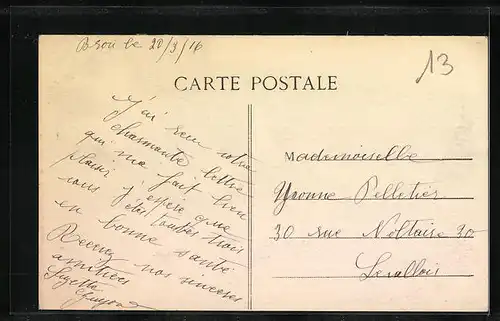 le 20/3/16
13
CARTE POSTALE
J'ai reçu votre
charmante lettre
qui me fait bien
plaisir j'espère que
vous êtes toutes trois
en bonne santé.
Recevez nos sincères
amitiés
Mademoiselle
Yvonne Pelletier
30 rue Voltaire 30
Levallois